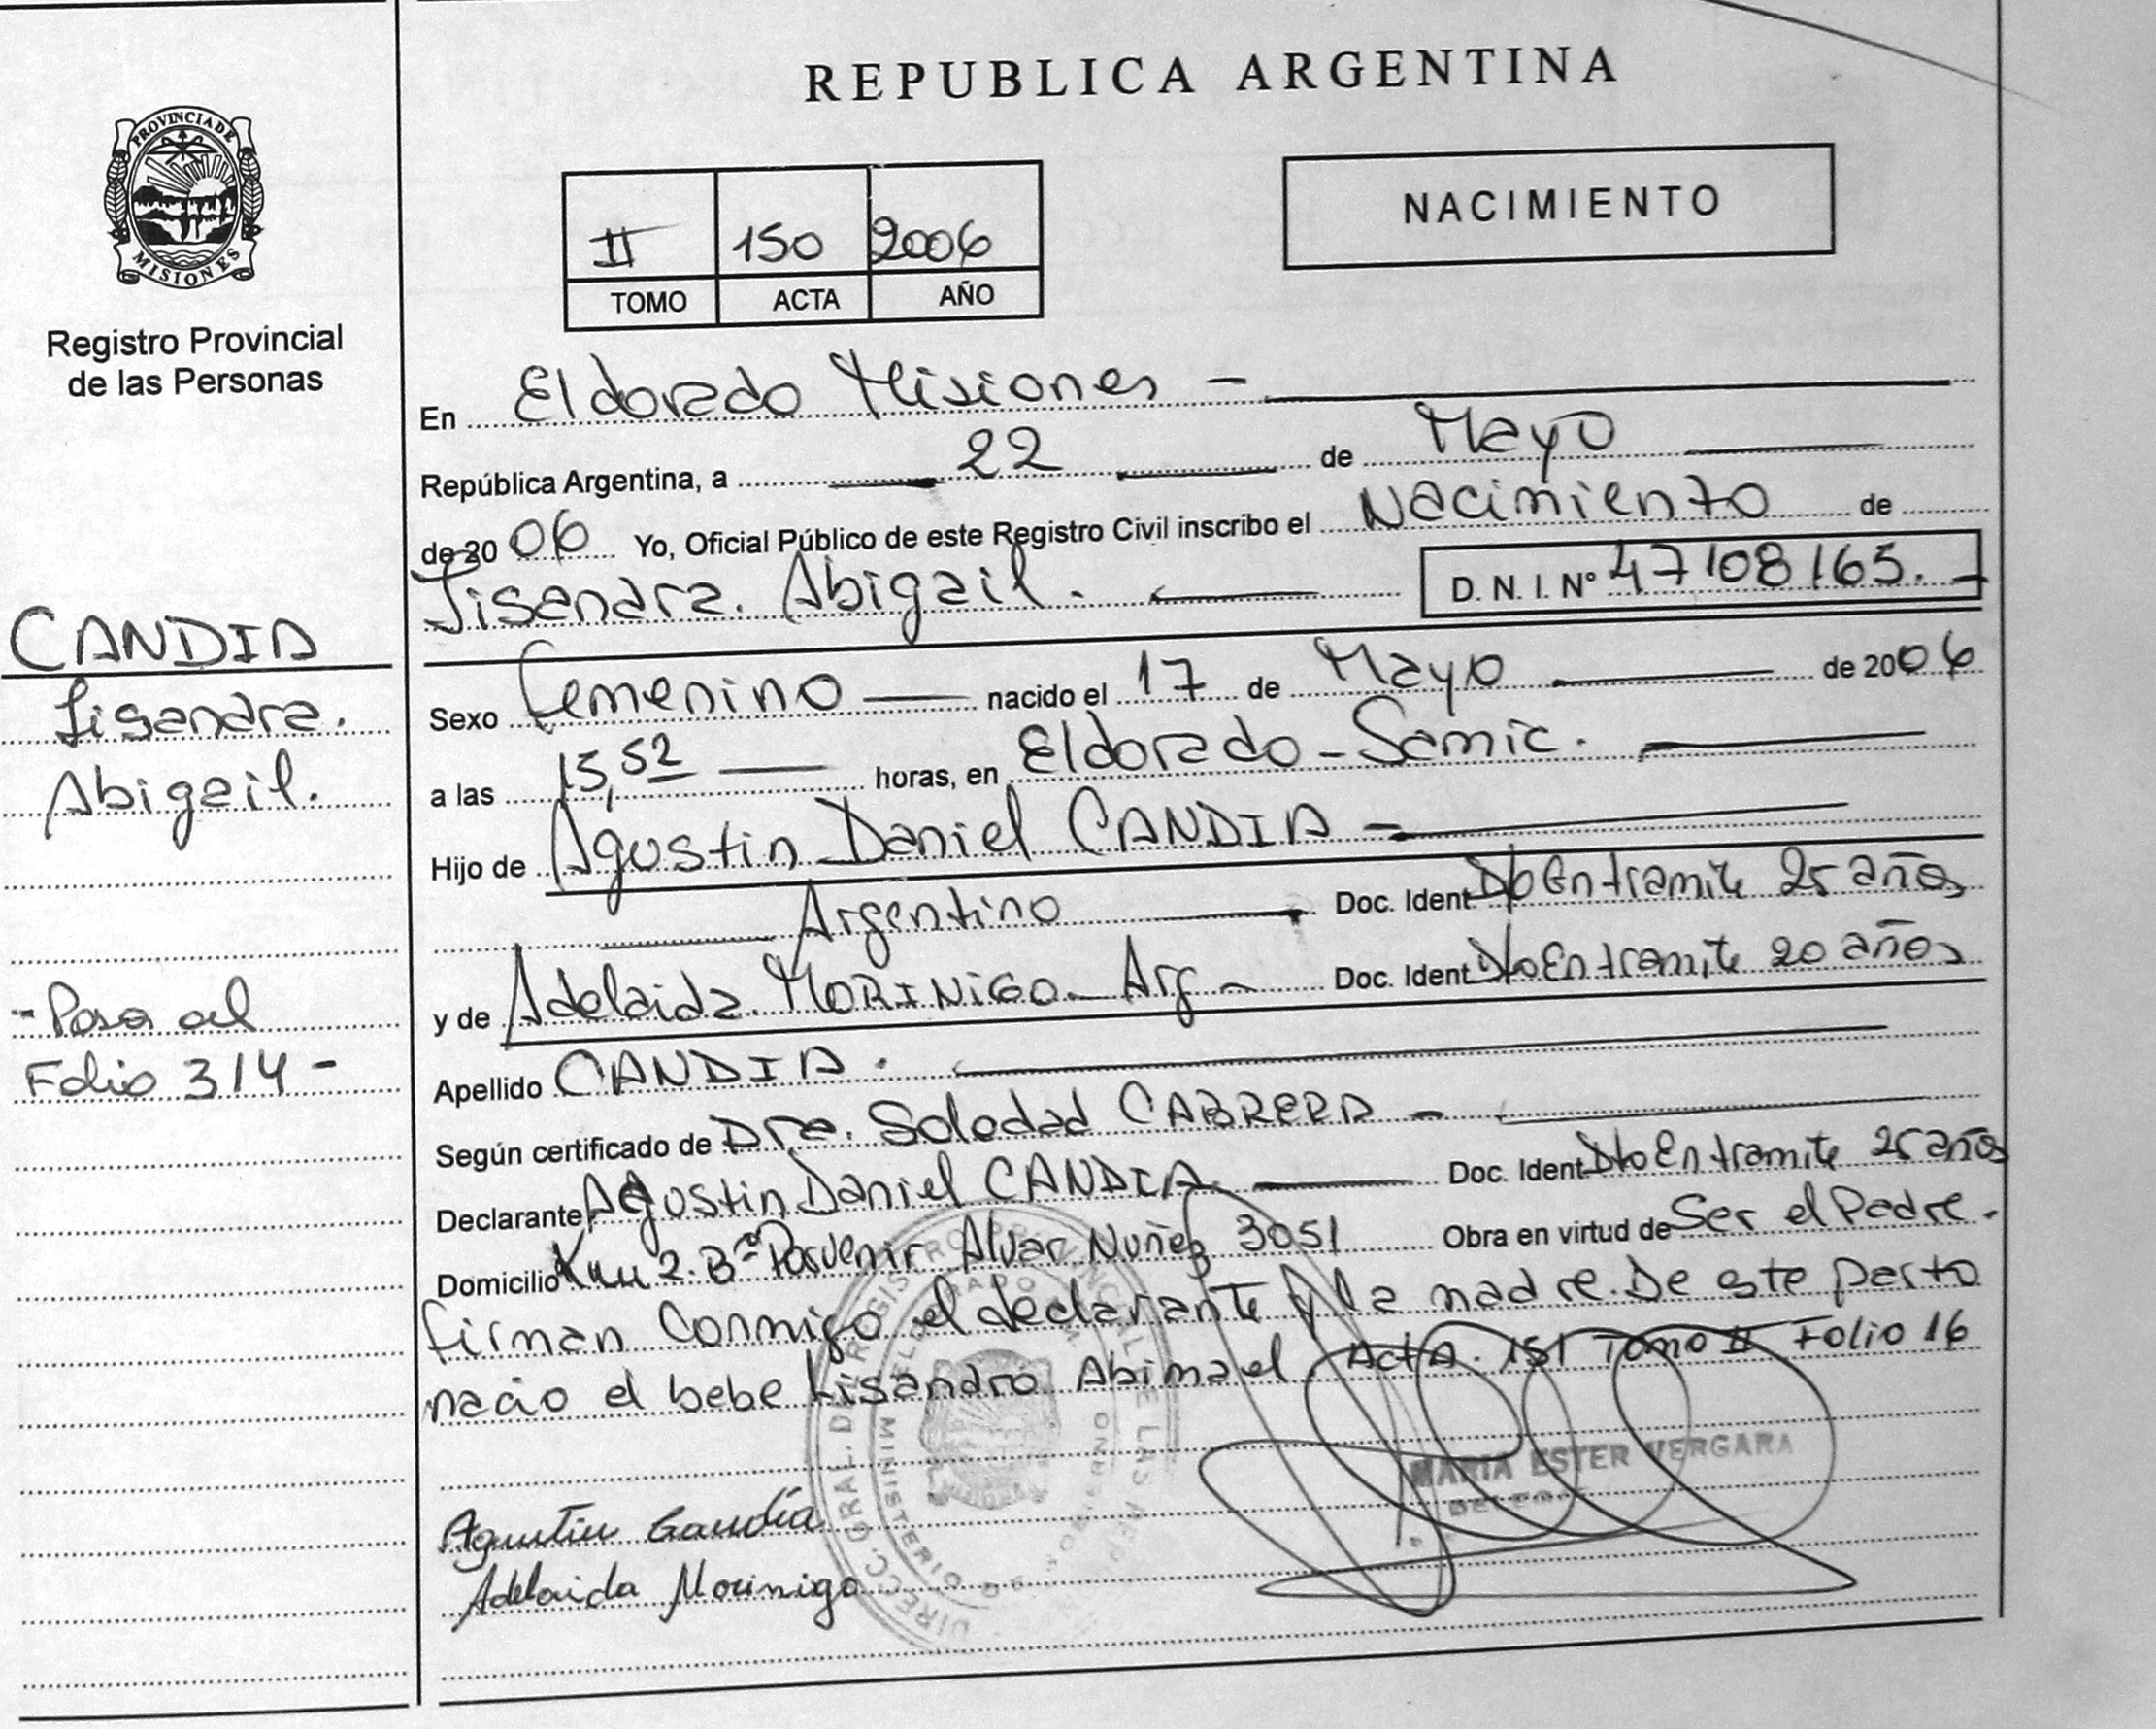 REPUBLICA ARGENTINA
PROVINCIA DE
MISIONES
Registro Provincial
de las Personas
II 150 2006
TOMO ACTA AÑO
NACIMIENTO
En Eldorado Misiones -
República Argentina, a 22 de Mayo
de 2006 Yo, Oficial Público de este Registro Civil inscribo el Nacimiento de
Lisandra. Abigail. D. N. I. N° 47108165.-
CANDIA
Lisandra.
Abigail.
Sexo Femenino nacido el 17 de Mayo de 2006
a las 15,52 horas, en Eldorado - Samic.
Hijo de Agustin Daniel CANDIA -
Argentino Doc. Ident Dto En tramite 25 años
y de Adelaida. MORINIGO - Arg - Doc. Ident Dto En tramite 20 años
- Pasa al
Folio 314 -
Apellido CANDIA.
Según certificado de Dra. Soledad CABRERA -
Declarante Agustin Daniel CANDIA Doc. Ident Dto En tramite 25 años
Domicilio Km 2. B° Porvenir Alvar Nuñez 3051 Obra en virtud de Ser el Padre.
firman conmigo el declarante y la madre. De este parto
nacio el bebe Lisandro Abimael Acta. 151 Tomo II Folio 16
MARIA ESTER VERGARA
Agustin Candia
Adelaida Morinigo